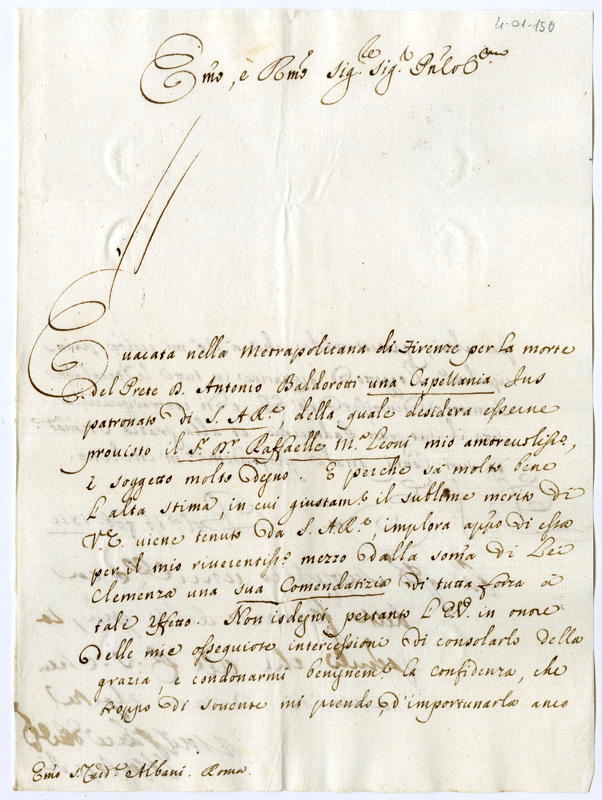 4-01-150
Emo, e Rmo Sig.re Sig.r Pnlo Cmo
E vacata nella Metrapolitana di Firenze per la morte
del Prete D. Antonio Baldorotti una Capellania Jus
patronato di S. A. R.e, della quale desidera esserne
provisto il S.r D.r Raffaelle M.a Leoni mio amorevoliss.o,
e soggetto molto degno. E perche sà molto bene
l'alta stima, in cui giustam.e il sublime merito di
V.E. viene tenuto da S. A. R.e, implora app.o di essa
per il mio riverentiss.o mezzo dalla somã di Lei
Clemenza una sua Comendatizia di tutta forza a
tale effetto. Non isdegni pertanto L'E.V. in onore
delle mie ossequiose intercessioni di consolarlo della
grazia, e condonarmi benignem.e la confidenza, che
troppo di sovente mi prendo, d'importunarla anco
Emo S.r Card.e Albani. Roma.